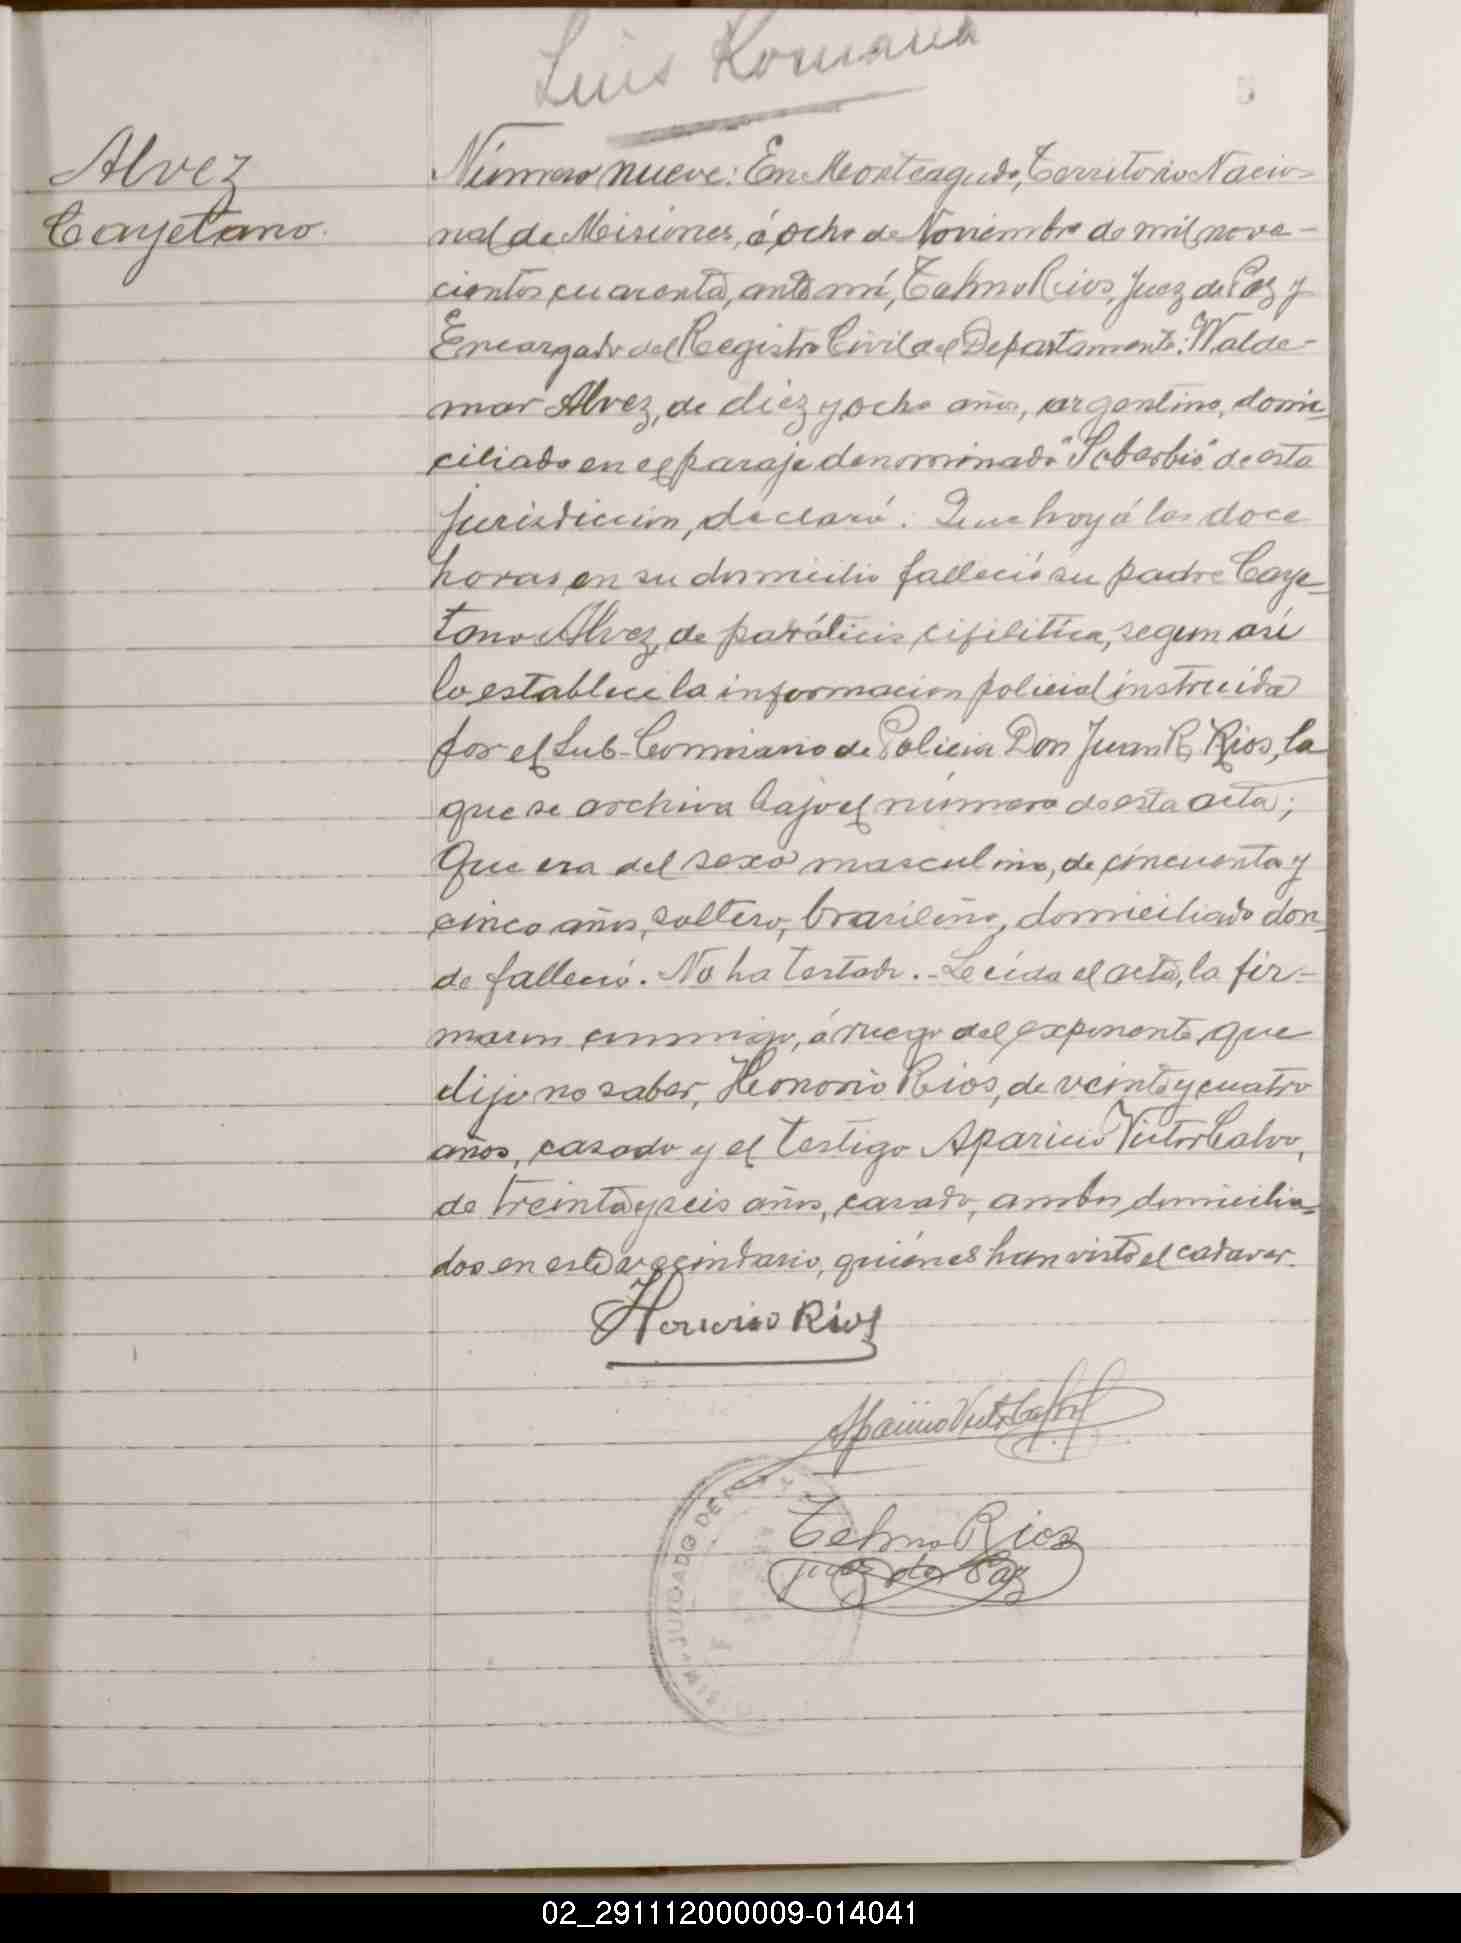 Luis Romana
5
Alvez
Cayetano.
Número nueve: En Monteagudo, Territorio Nacio-
nal de Misiones, á ocho de Noviembre de mil nove-
cientos cuarenta, ante mí, Telmo Rios, Juez de Paz y
Encargado del Registro Civil del Departamento: Walde-
mar Alvez, de diez y ocho años, argentino, domi-
ciliado en el paraje denominado "Soberbio" de esta
jurisdiccion, declaró: Que hoy á las doce
horas en su domicilio falleció su padre Caye-
tano Alvez, de parálicis cifilitica, segun asi
lo establece la informacion policial instruida
por el Sub-Comisario de Policia Don Juan R. Rios, la
que se archiva bajo el número de esta acta;
Que era del sexo masculino, de cincuenta y
cinco años, soltero, brasileño, domiciliado don-
de falleció. No ha testado.- Leida el acta, la fir-
maron conmigo, á ruego del exponente que
dijo no saber, Honorio Rios, de veinte y cuatro
años, casado y el testigo Aparicio Victor Calvo,
de treinta y seis años, casado, ambos domicilia-
dos en este vecindario, quiénes han visto el cadaver.
Honorio Rios
Aparicio Victor Calvo
Telmo Rios
Juez de Paz
JUZGADO DE PAZ
02_291112000009-014041